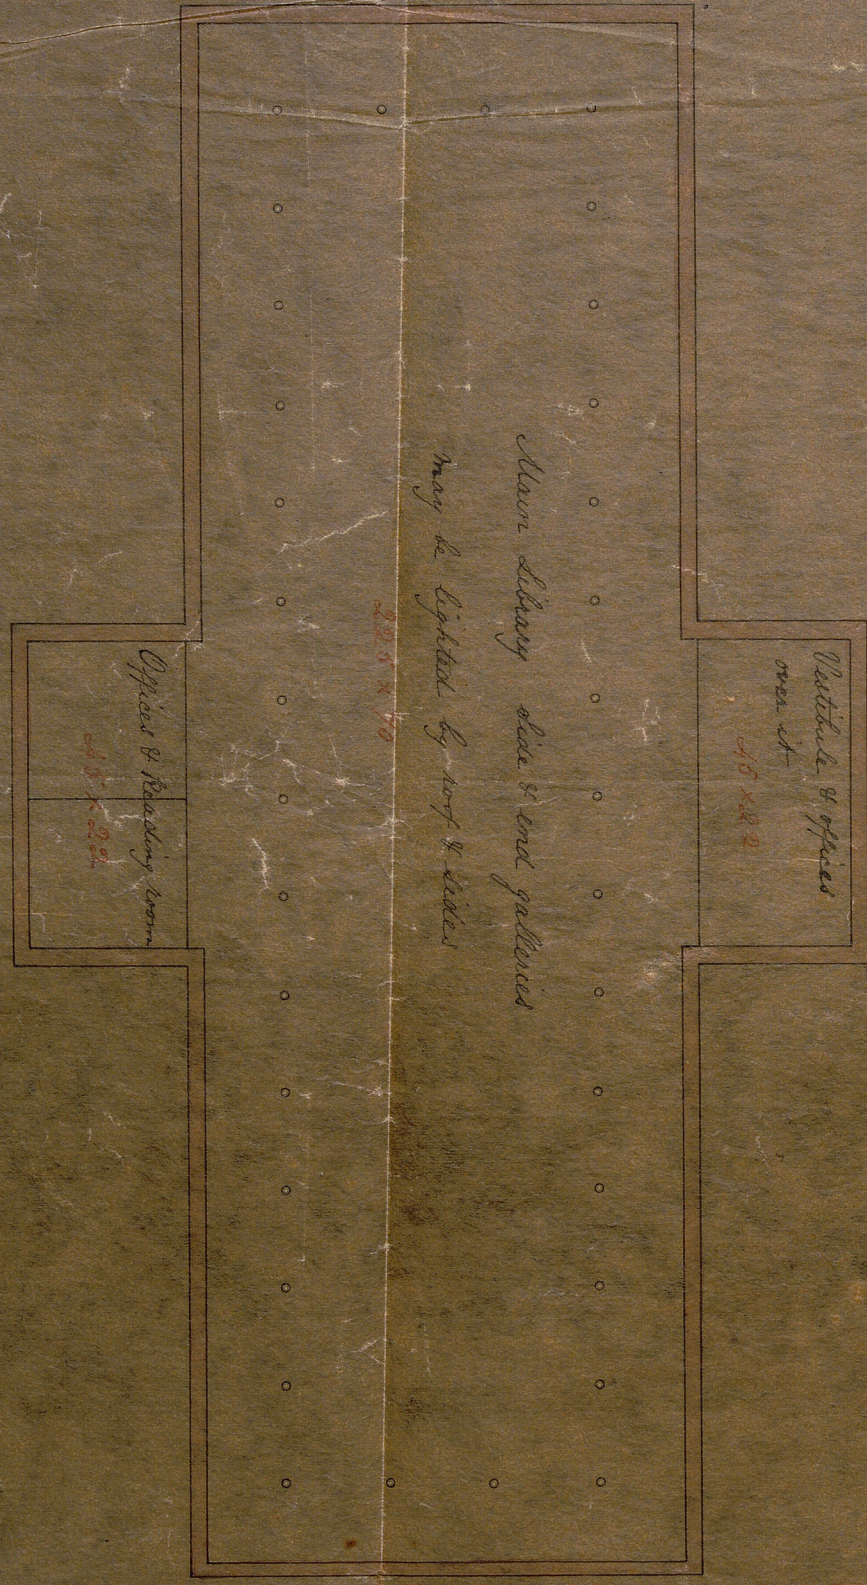 Vestibule & offices
over it
45 x 22
Main Library Side & end galleries
may be lighted by roof & sides
225 x 70
Offices & Reading room
45 x 22